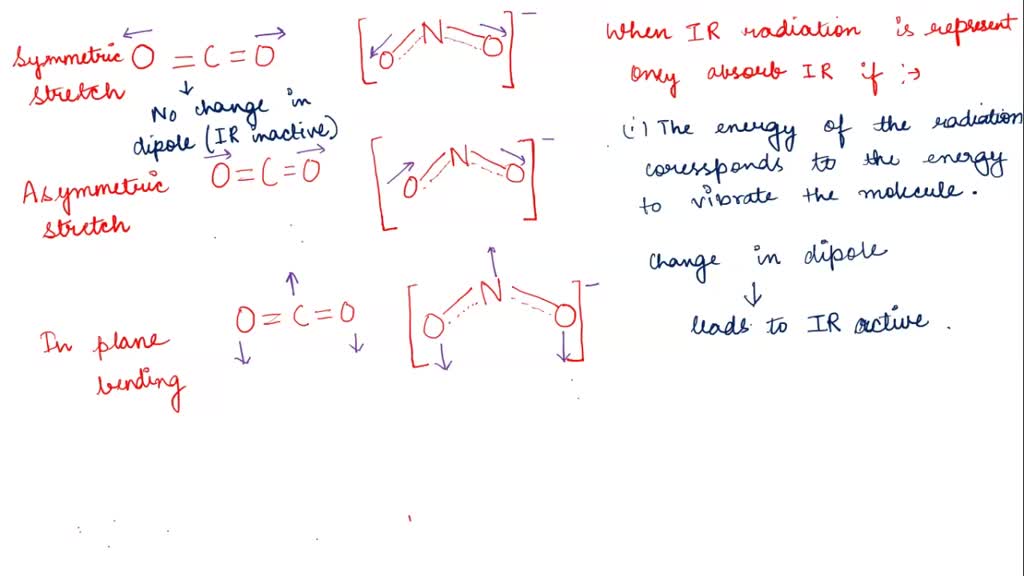 Symmetric
stretch
O = C = O
No change in
dipole (IR inactive)
[O N O]⁻
Asymmetric
stretch
O = C = O
[O N O]⁻
In plane
bending
O = C = O
[O N O]⁻
When IR radiation is represent
only absorb IR if :→
(i) The energy of the radiation
coressponds to the energy
to vibrate the molecule.
change in dipole
↓
leads to IR active.